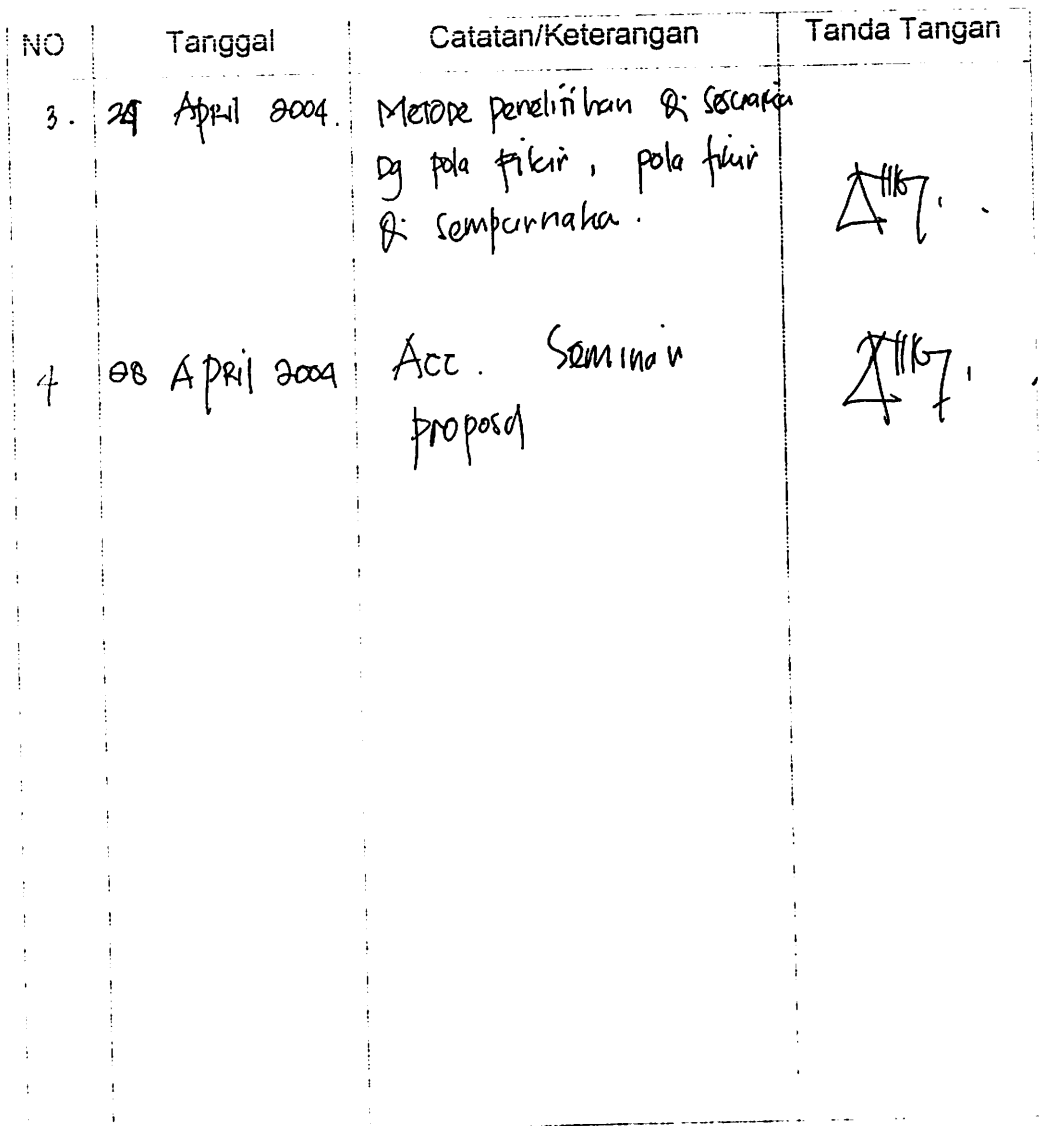 NO Tanggal Catatan/Keterangan Tanda Tangan
3. April 2004. Metode penelitihan di sesuaika
Dg pola fikir, pola fikir
di sempurnaka.
4 28 April 2004 Acc. Seminar
proposal